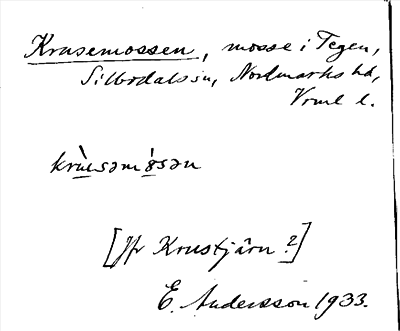 Krusemossen, mosse i Tegen,
Silbodals sn, Nordmarks hd,
Vrml l.
krùu̠səmò̠sən
[Jfr Krustjärn?]
E. Andersson 1933.